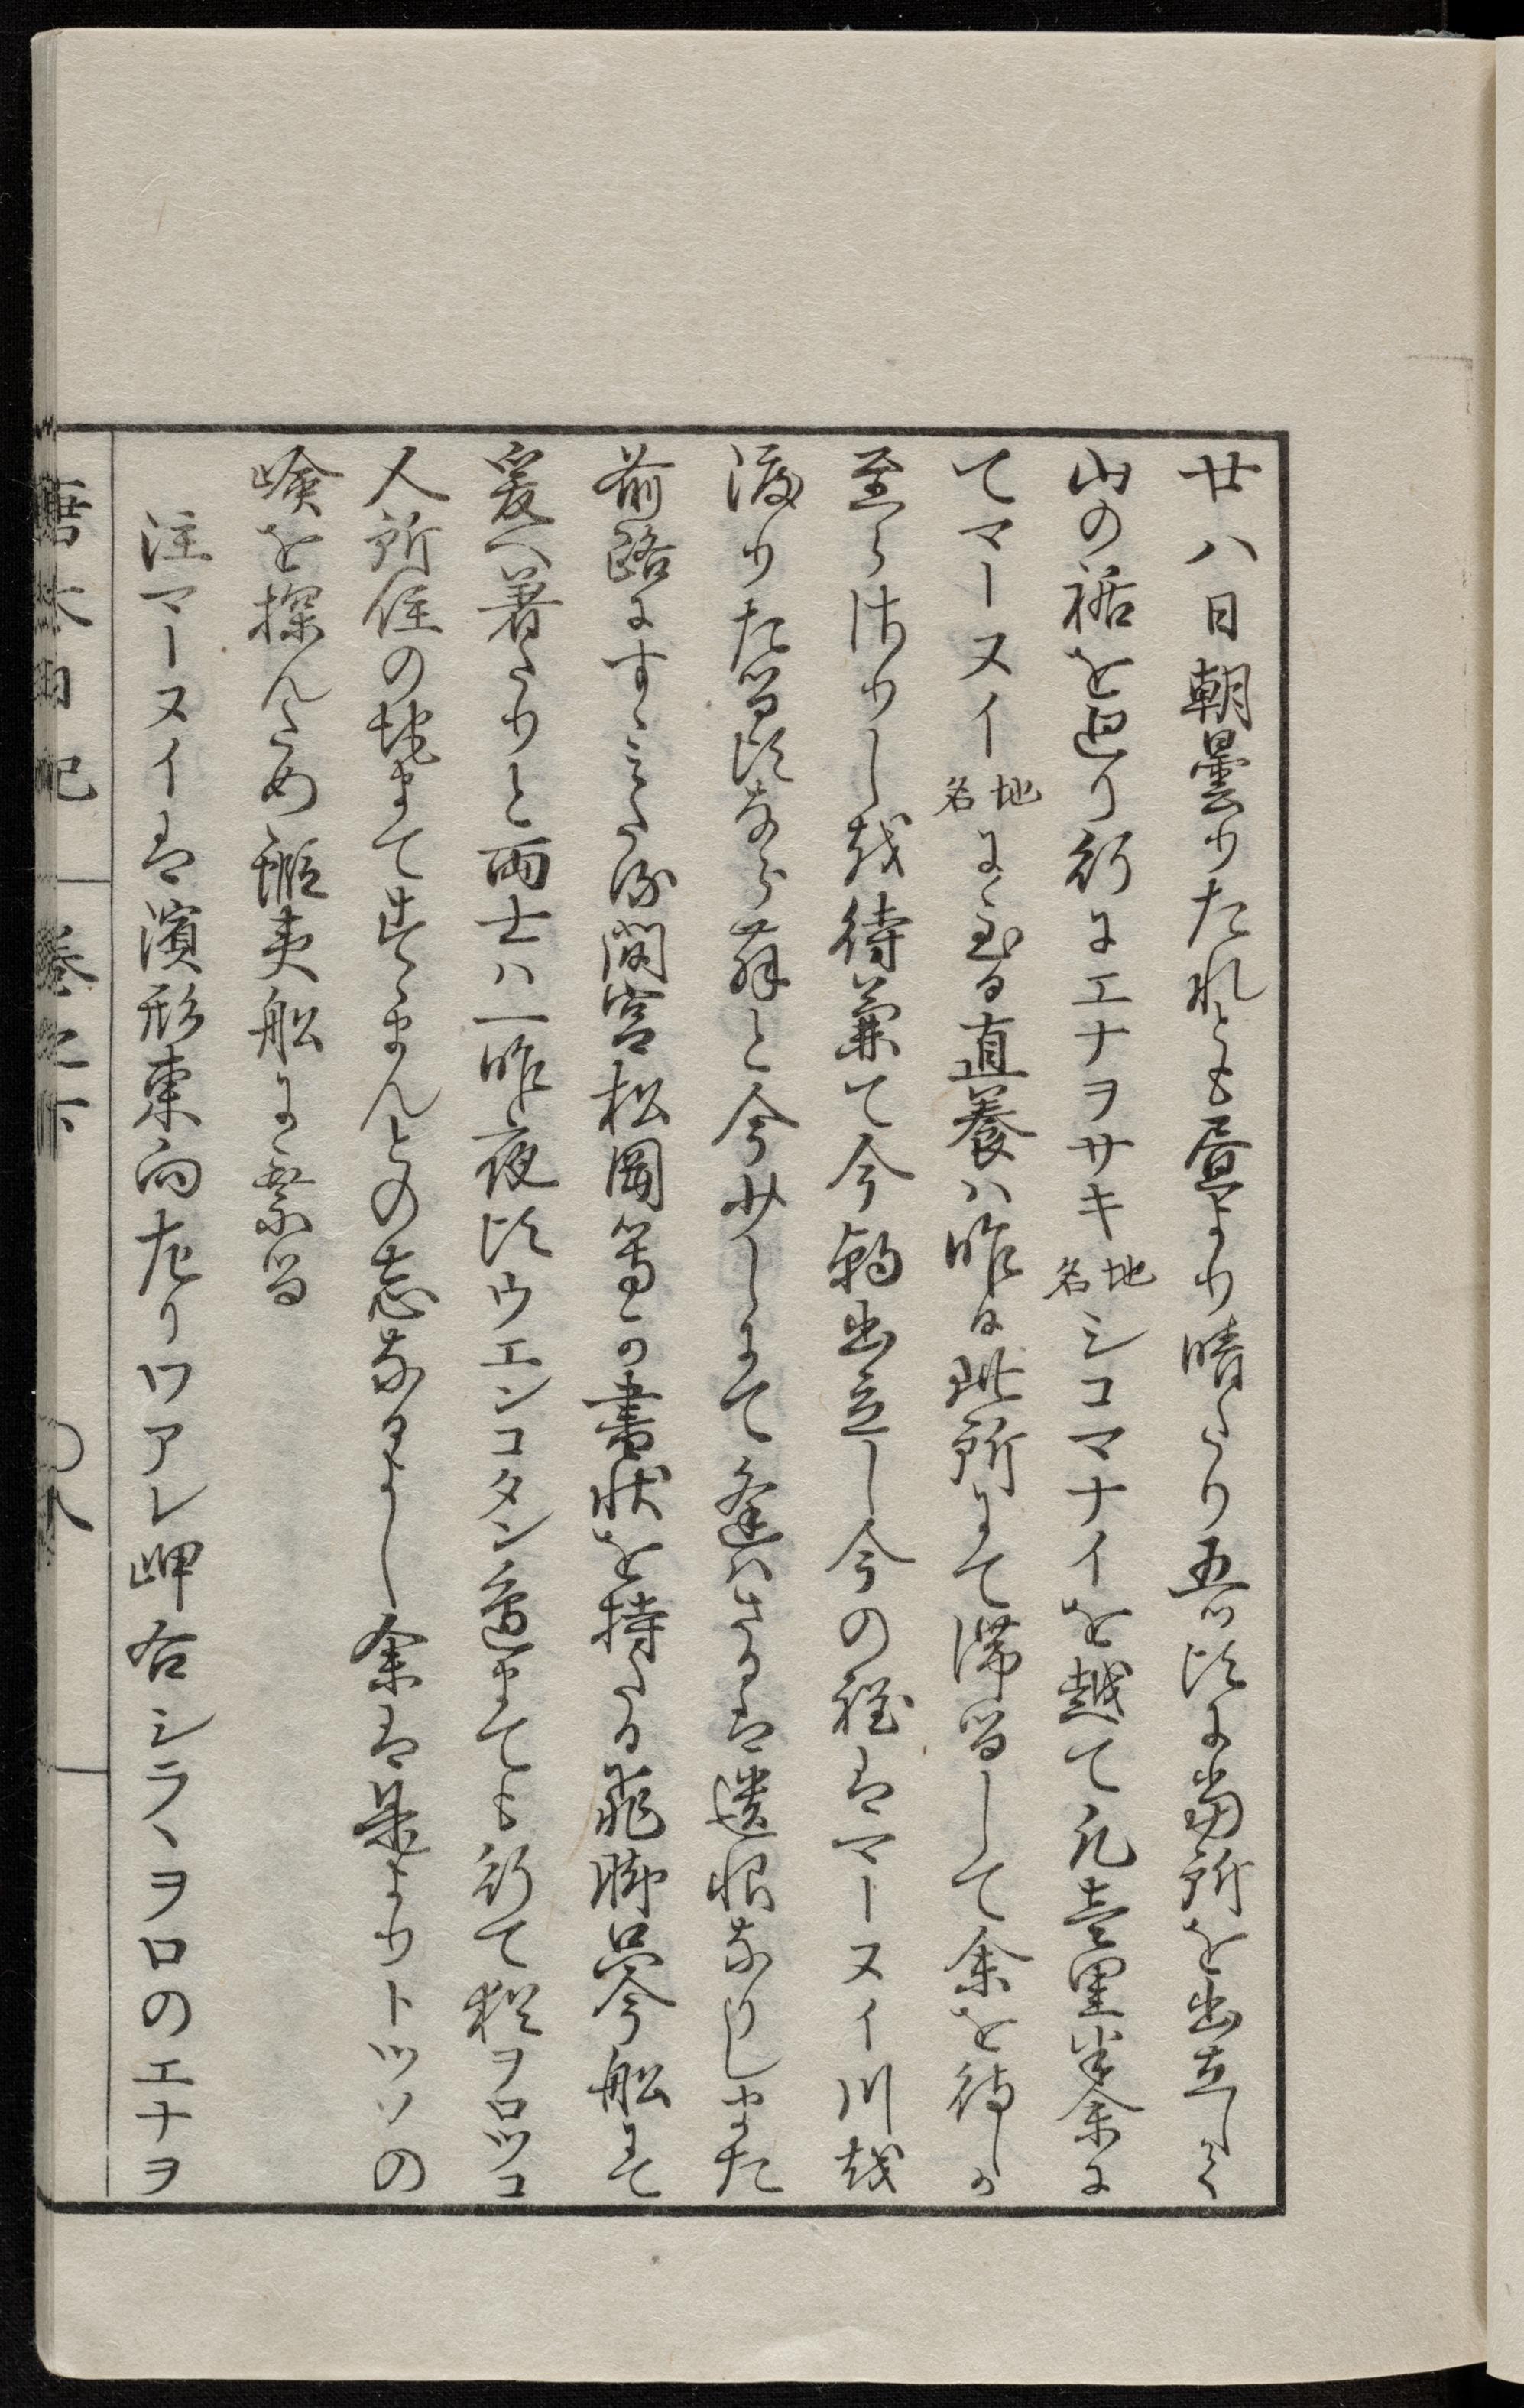 廿八日朝曇りたれとも昼より晴たり五ツ比に當所を出立して
山の裾を廻り行にエナヲサキ地名シコマナイを越て凡壹里半余に
てマーヌイ地名に至る直養ハ昨日此所にて滞留して余を待しか
至らさりし故待兼て今朝出立し今の程はマーヌイ川越
渡りた留比ならめと今少しにて逢ハさるは遺恨なりしまた
前路にすゝみたる間宮松岡等の書状を持たる飛脚只今船にて
爰へ着たりと両士ハ一昨夜比ウエンコタン邉まても行て猶ヲロツコ
人所住の地まてすゝまんとの志なるよし余は是よりトツソの
嶮を探んため蝦夷船に乗る
注マーヌイは濱形東向左りワアレ岬右シラヽヲロのエナヲ
唐太日記　巻之下　〇八